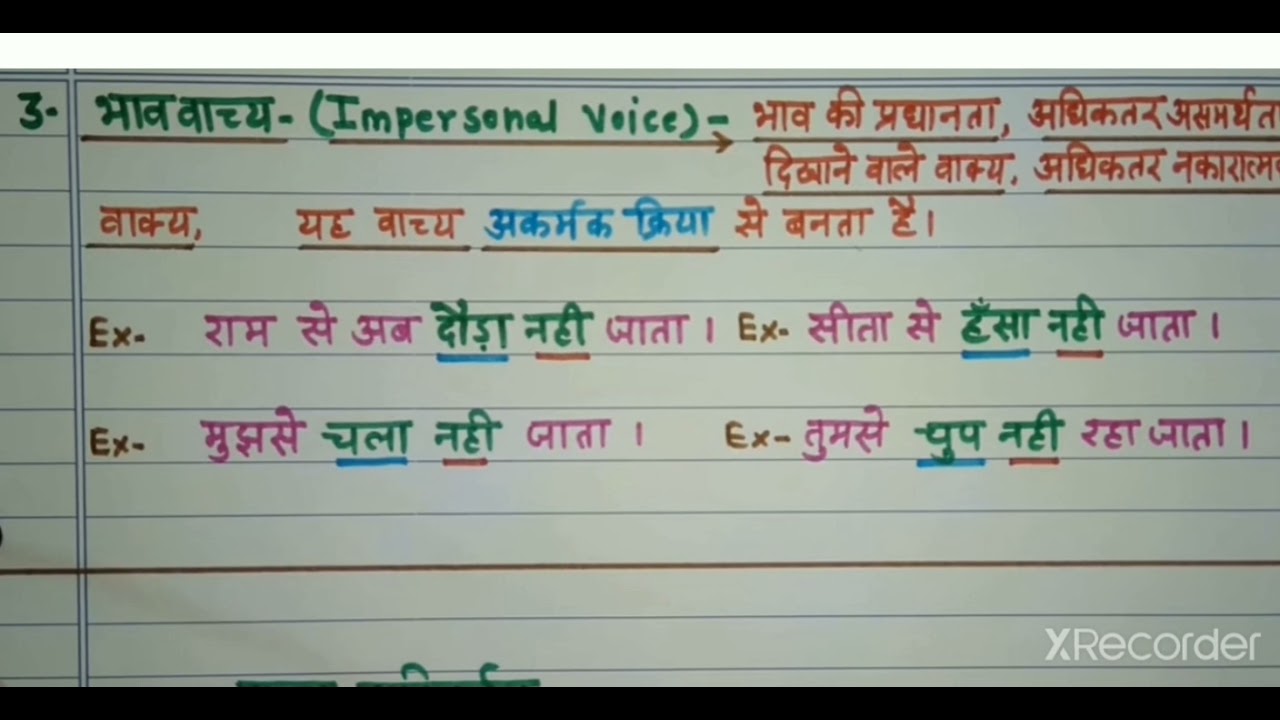 3- भाव वाच्य- (Impersonal Voice)- भाव की प्रधानता, अधिकतर असमर्थता
दिखाने वाले वाक्य, अधिकतर नकारात्मक
वाक्य, यह वाच्य अकर्मक क्रिया से बनता है।
Ex- राम से अब दौड़ा नही जाता। Ex- सीता से हँसा नही जाता।
Ex- मुझसे चला नही जाता। Ex- तुमसे चुप नही रहा जाता।
XRecorder